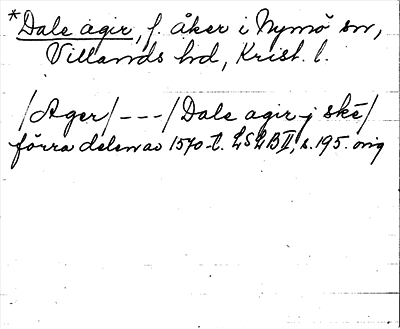 *Dale agir, f. åker i Nymö sn,
Villands hd, Krist. l.
/Ager/ --- /Dale agir j skè/
förra delen av 1570-t. LSLB II, s. 195. orig